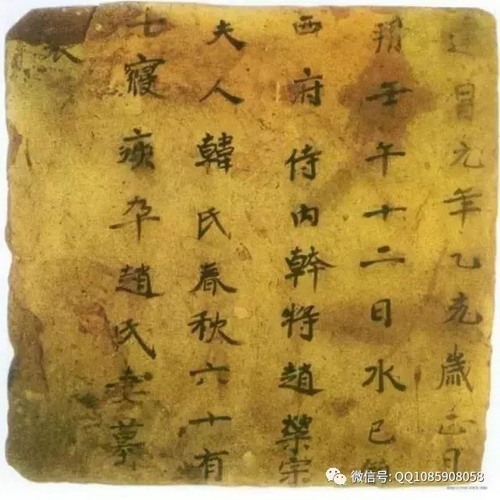 建昌元年乙亥歲正月
朔壬午十二日水巳鎮
西府侍内幹將趙榮宗
夫人韓氏春秋六十有
七寢疾卒趙氏妻墓
表
微信号: QQ1085908058